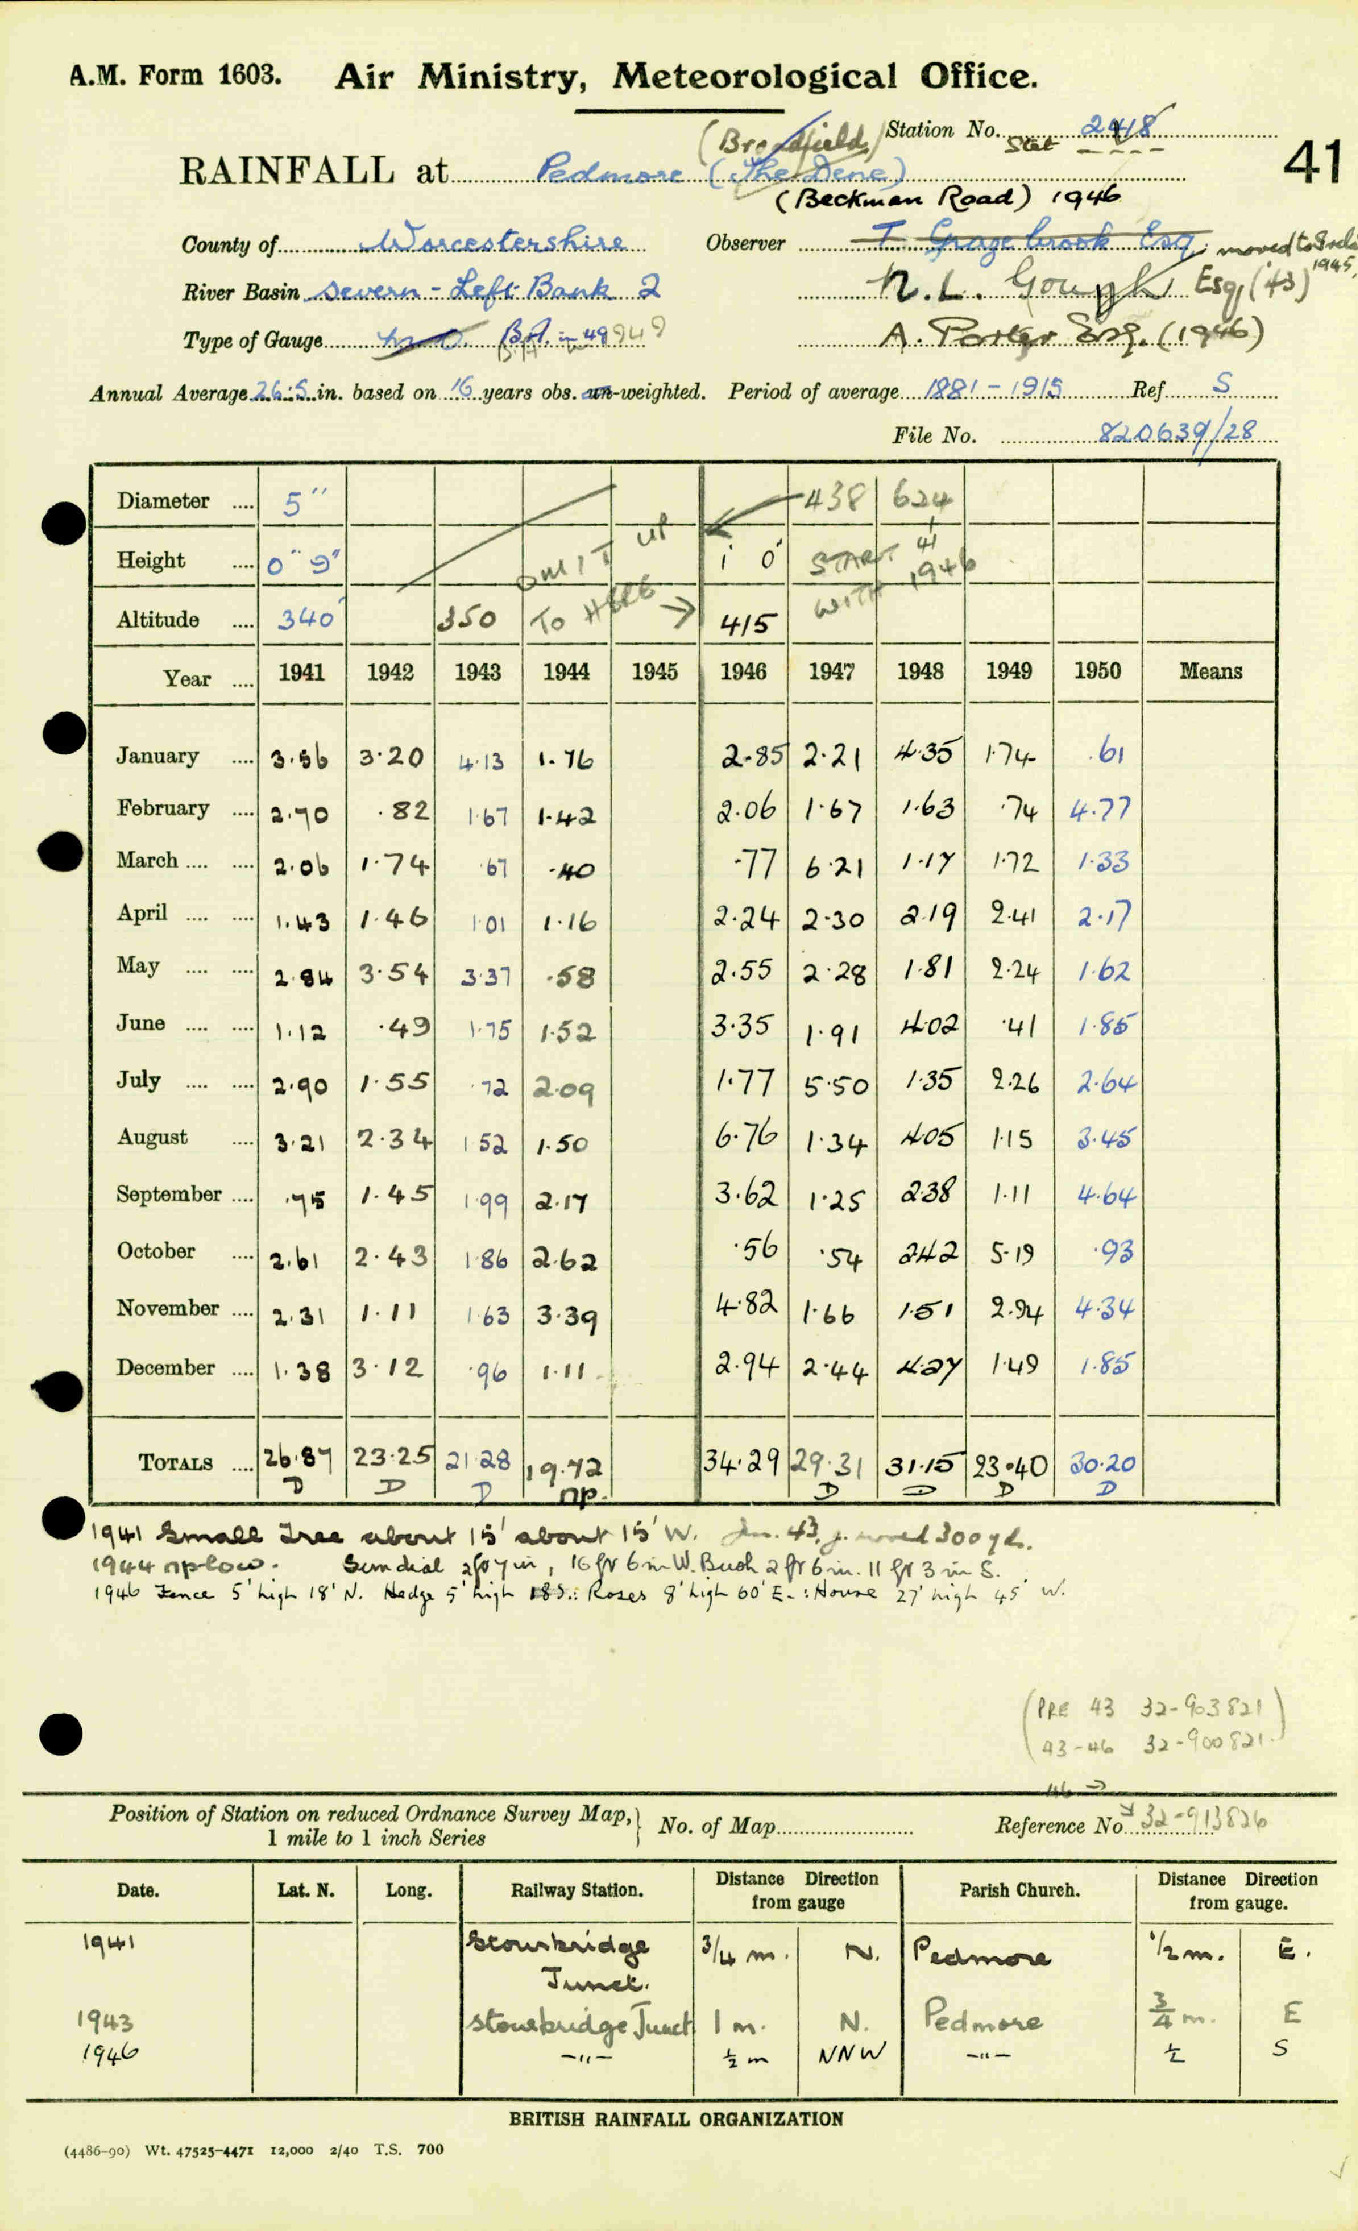 A.M. Form 1603. Air Ministry, Meteorological Office.
(Broadfield) Station No. 2418
Stat
RAINFALL at Pedmore (The Dene) 41
(Beckman Road) 1946
County of Worcestershire Observer T Grazebrook Esq. moved to
1945
River Basin Severn - Left Bank 2 N.L. Gough Esq, ('43)
Type of Gauge B.A. in 49 A. Porter Esq. (1946)
Annual Average 26.5 in. based on 16 years obs. un-weighted. Period of average 1881-1915 Ref. S
File No. 820639/28
Diameter 5" 438 624
Height 0" 9" OMIT UP 1 0" START 41
Altitude 340' 350 TO HERE → 415 WITH 1946
Year 1941 1942 1943 1944 1945 1946 1947 1948 1949 1950 Means
January 3.56 3.20 4.13 1.76 2.85 2.21 4.35 1.74 .61
February 2.70 .82 1.67 1.42 2.06 1.67 1.63 .74 4.77
March 2.06 1.74 .67 .40 .77 6.21 1.17 1.72 1.33
April 1.43 1.46 1.01 1.16 2.24 2.30 2.19 2.41 2.17
May 2.84 3.54 3.37 .58 2.55 2.28 1.81 2.24 1.62
June 1.12 .49 1.75 1.52 3.35 1.91 4.02 .41 1.85
July 2.90 1.55 .72 2.09 1.77 5.50 1.35 2.26 2.64
August 3.21 2.34 1.52 1.50 6.76 1.34 4.05 1.15 3.45
September .75 1.45 1.99 2.17 3.62 1.25 2.38 1.11 4.64
October 2.61 2.43 1.86 2.62 .56 .54 2.42 5.19 .93
November 2.31 1.11 1.63 3.39 4.82 1.66 1.51 2.94 4.34
December 1.38 3.12 .96 1.11 2.94 2.44 4.27 1.49 1.85
TOTALS 26.87 23.25 21.28 19.72 34.29 29.31 31.15 23.40 30.20
D D D np. D D D D
1941 Small Tree about 15' about 15' W. Jan. 43, g. moved 300 yds.
1944 np low. Sundial 2ft 7 in, 16 ft 6 in W. Bush 2 ft 6 in. 11 ft 3 in S.
1946 Fence 5' high 18' N. Hedge 5' high 18 S.: Roses 8' high 60' E.: House 27' high 45' W.
(PRE 43 32-903821)
(43-46 32-900821)
46 →
Position of Station on reduced Ordnance Survey Map, No. of Map Reference No 32-913826
1 mile to 1 inch Series
Date. Lat. N. Long. Railway Station. Distance from gauge Direction Parish Church. Distance from gauge. Direction
1941 Stourbridge Junct. 3/4 m. N. Pedmore 1/2 m. E.
1943 Stourbridge Junct 1 m. N. Pedmore 3/4 m. E
1946 -"- 1/2 m NNW -"- 1/2 S
BRITISH RAINFALL ORGANIZATION
(4486-90) Wt. 47525-4471 12,000 2/40 T.S. 700